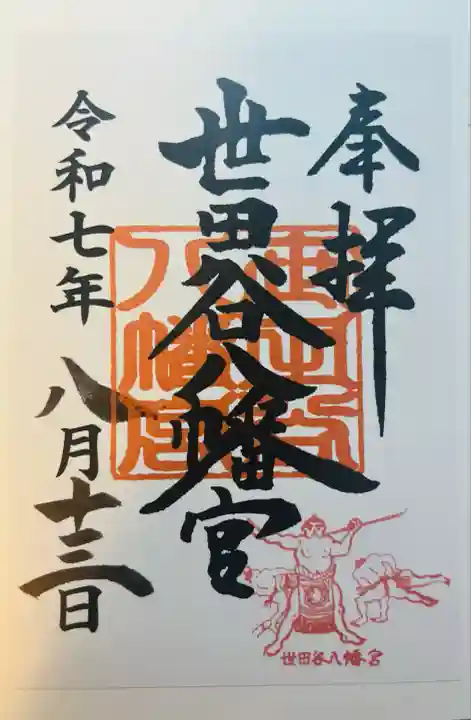 奉拝
世田谷八幡宮
世田谷
八幡宮
令和七年 八月十三日
世田谷八幡宮